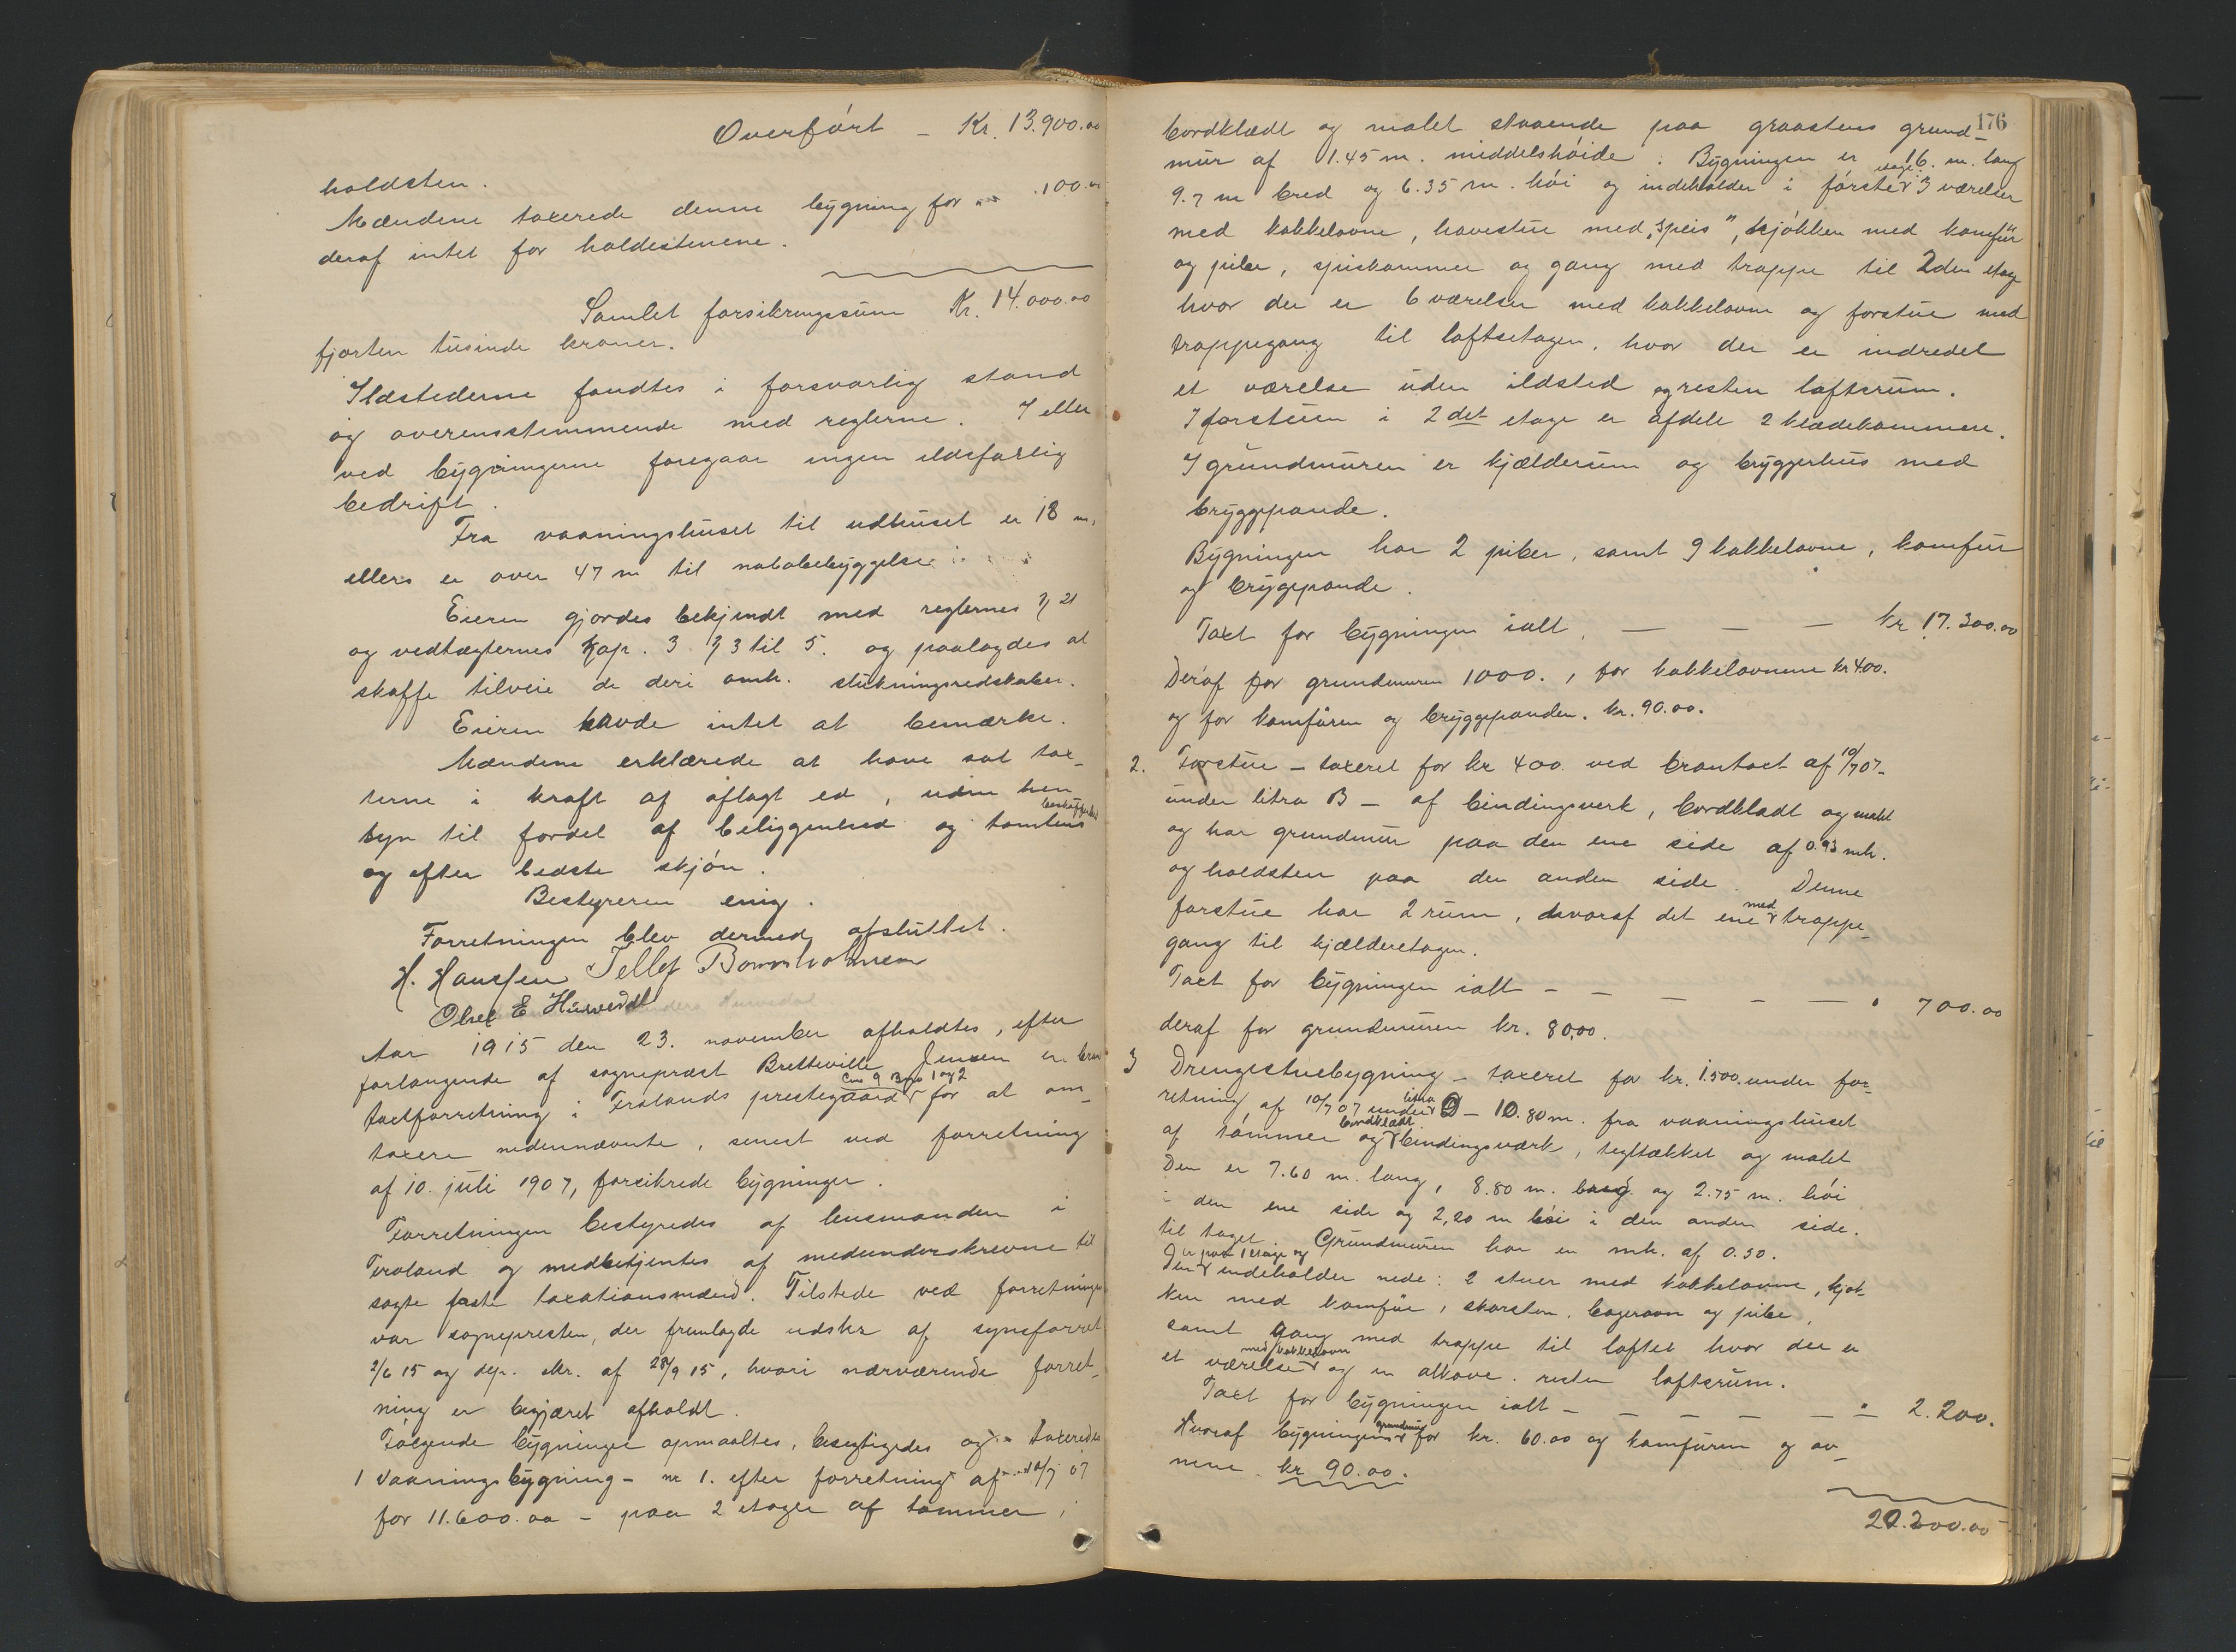 Overført - Kr. 13.900.00
holdsten.
Mændene taxerede denne bygning for " 100.00
deraf intet for holdestenene.
Samlet forsikringssum Kr. 14.000.00
fjorten tusinde kroner.
Ildstederne fandtes i forsvarlig stand
og overensstemmende med reglerne. I eller
ved bygningerne foregaar ingen ildsfarlig
bedrift.
Fra vaaningshuset til udhuset er 18 m.
ellers er over 47 m til nabobebyggelse
Eieren gjordes bekjendt med reglernes § 21
og vedtægternes Kap. 3 § 3 til 5. og paalagdes at
skaffe tilveie de deri omh. slukningsredskaber.
Eieren havde intet at bemærke.
Mændene erklærede at have sat tax-
terne i kraft af aflagt ed, uden hen
syn til fordel af beliggenhed og tomtens beskaffenhed
og efter bedste skjøn.
Bestyreren enig.
Forretningen blev dermed afsluttet.
H. Hanssen Tellef Bommholmsen
Olsel E Hurvedal
Aar 1915 den 23. november afholdtes, efter
forlangende af sogneprest Bretteville Jensen en bran
taxtforretning i Frolands prestegaard Gno 9 Bno 1 og 2 for at om-
taxere nedennævnte, senest ved forretning
af 10. juli 1907, forsikrede bygninger.
Forretningen bestyredes af lensmanden i
Froland og medbetjentes af medunderskrevne til
sagte faste taxationsmænd. Tilstede ved forretningen
var sognepresten, der fremlagde udskr af synsforret
2/6 15 og dep. skr. af 28/9 15, hvori nærværende forret-
ning er begjæret afholdt.
Følgende bygninger opmaaltes, besigtigedes og taxeredes
1 Vaaningsbygning - nr 1. efter forretning af 10/7 07
for 11.600.00 - paa 2 etager af tømmer,
176
bordklædt og malet staaende paa graastens grund-
mur af 1.45 m. middelshøide. Bygningen er 16. m. lang
9.7 m bred og 6.35 m. høi og indeholder i første etage 3 værelser
med kakkelovne, havestue med "speis", kjøkken med komfur
og piber, spiskammer og gang med trappe til 2den etage
hvor der er 6 værelser med kakkelovn og forstue med
trappegang til loftsetagen, hvor der er indredet
et værelse uden ildsted og resten loftsrum.
I forstuen i 2det etage er afdelt 2 klædekammere.
I grundmuren er kjælderrum og bryggerhus med
bryggepande.
Bygningen har 2 piber, samt 9 kakkelovne, komfur
og bryggepande.
Taxt for bygningen ialt. — — — kr 17.300.00
Deraf for grundmuren 1000., for kakkelovnene kr 400.
og for komfuren og bryggepanden. kr. 90.00.
2. Forstue - taxeret for kr 400. ved brantaxt af 10/7 07-
under litra B - af bindingsverk, bordklædt og malet
og har grundmur paa den ene side af 0.93 mh.
og holdsten paa den anden side. Denne
forstue har 2 rum, hvoraf det ene med trappe-
gang til kjælderetagen.
Taxt for bygningen ialt - - - - - " 700.00
deraf for grundmuren kr. 80,00.
3 Drengestuebygning - taxeret for kr. 1.500. under for-
retning af 10/7 07 under litra D - 10.80 m. fra vaaningshuset
af tømmer og bordklædt bindingsværk, tegltækket og malet
Den er 7.60 m. lang, 8.80 m. bred og 2.75 m. høi
i den ene side og 2,20 m høi i den anden side.
til taget. Grundmuren har en mh. af 0.50.
Den er paa 1 etage og indeholder nede: 2 stuer med kakkelovne, kjøk-
ken med komfur, skorsten, bagerovn og pibe,
samt gang med trappe til loftet hvor der er
et værelse med kakkelovn og en alkove. resten loftsrum.
Taxt for bygningen ialt - - - - - " 2.200.
Hvoraf bygningens grundmur for kr. 60.00 og komfuren og ov-
nene kr 90.00.
20.200.00